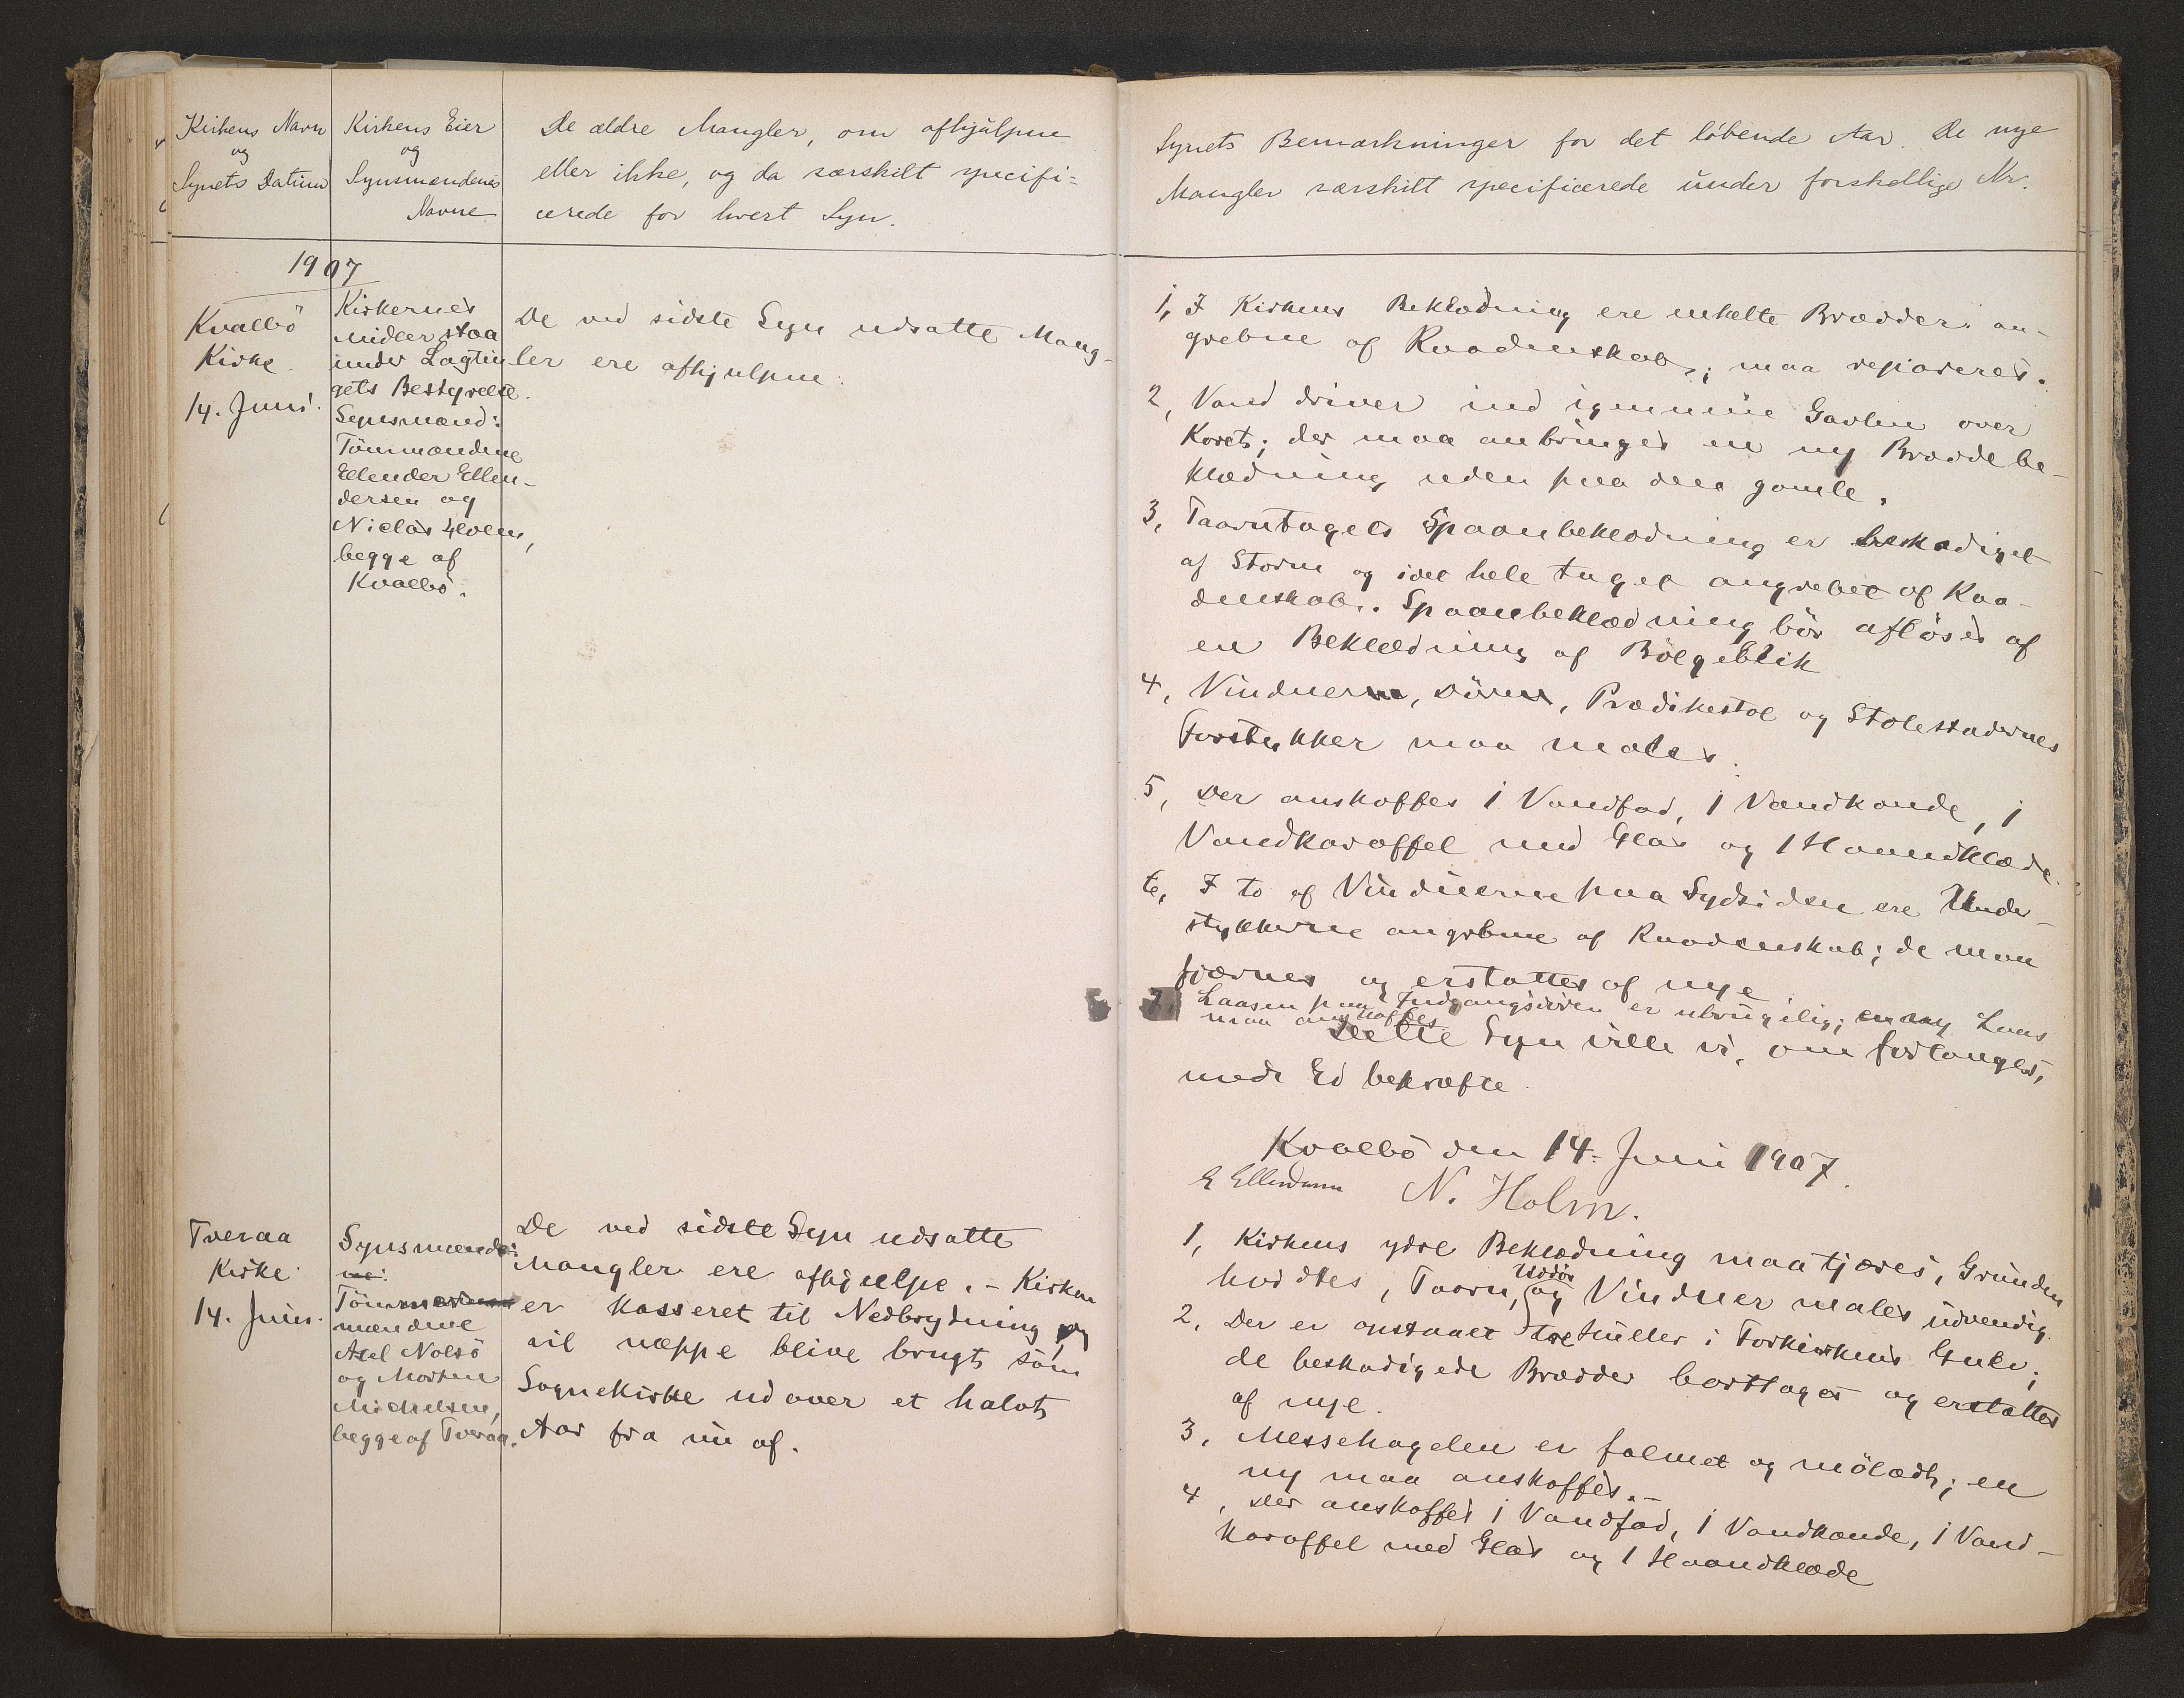 Kirkens Navn
og
Synets Datum
Kirkens Eier
og
Synsmændenes
Navne
De ældre Mangler, om afhjülpne
eller ikke, og da særskilt specifi=
cerede for hvert Syn.
1907
Kvalbö
Kirke.
14. Juni.
Kirkernes
Midler staa
under Lagtin
gets Bestyrelse.
Synsmænd:
Tömmændene
Ellender Ellen-
dersen og
Niclas Holm,
begge af
Kvalbö.
De ved sidste Syn udsatte Mang-
ler ere afhjulpne.
Tveraa
Kirke
14. Juni.
Synsmænde:
ne:
Töm
mændene
Axel Nolsö
og Morten
Michelsen,
begge af Tveraa.
De ved sidste Syn udsatte
Mangler ere afhjulpe. - Kirken
er kasseret til Nedbrydning og
vil næppe blive brugt som
Sognekirke ud over et halvt
Aar fra nu af.
Synets Bemærkninger for det löbende Aar. De nye
Mangler særskilt specificerede under forskellige Nr.
1, I Kirkens Beklædning ere enkelte Brædder an-
grebne af Raadenskab; maa repareres.
2, Vand driver ind igennem Gavlen over
Koret; der maa anbringes en ny Bræddebe-
klædning uden paa den gamle.
3, Taarntagets Spaanbeklædning er beskadiget
af Storm og i det hele taget angrebet af Raa-
denskab. Spaanbeklædning bör aflöses af
en Beklædning af Bölgeblik
4, Vinduerne, Dörene, Prædikestol og Stolestadernes
Forstykker maa males.
5, Der anskaffes 1 Vandfad, 1 Vandkande, 1
Vandkaraffel med Glas og 1 Haandklæde.
6, I to af Vinduerne paa Sydsiden ere Under-
stykkerne angrebne af Raadenskab; de maa
fjærnes og erstattes af nye
7, Laasen paa Indgangsdören er ubrugelig; en ny Laas
maa anskaffes
Dette Syn ville vi, om forlanges,
med Ed bekræfte.
Kvalbö den 14. Juni 1907.
E Ellendersen N. Holm.
1, Kirkens ydre Beklædning maa tjæres, Grunden
hvidtes, Taarn, Uddör og Vinduer males udvendig.
2, Der er opstaaet tre Huller i Forkirkens Gulv;
de beskadigede Brædder borttages og erstattes
af nye.
3, Messehagelen er falmet og mölædt; en
ny maa anskaffes. -
4, Der anskaffes 1 Vandfad, 1 Vandkande, 1 Vand-
karaffel med Glas og 1 Haandklæde